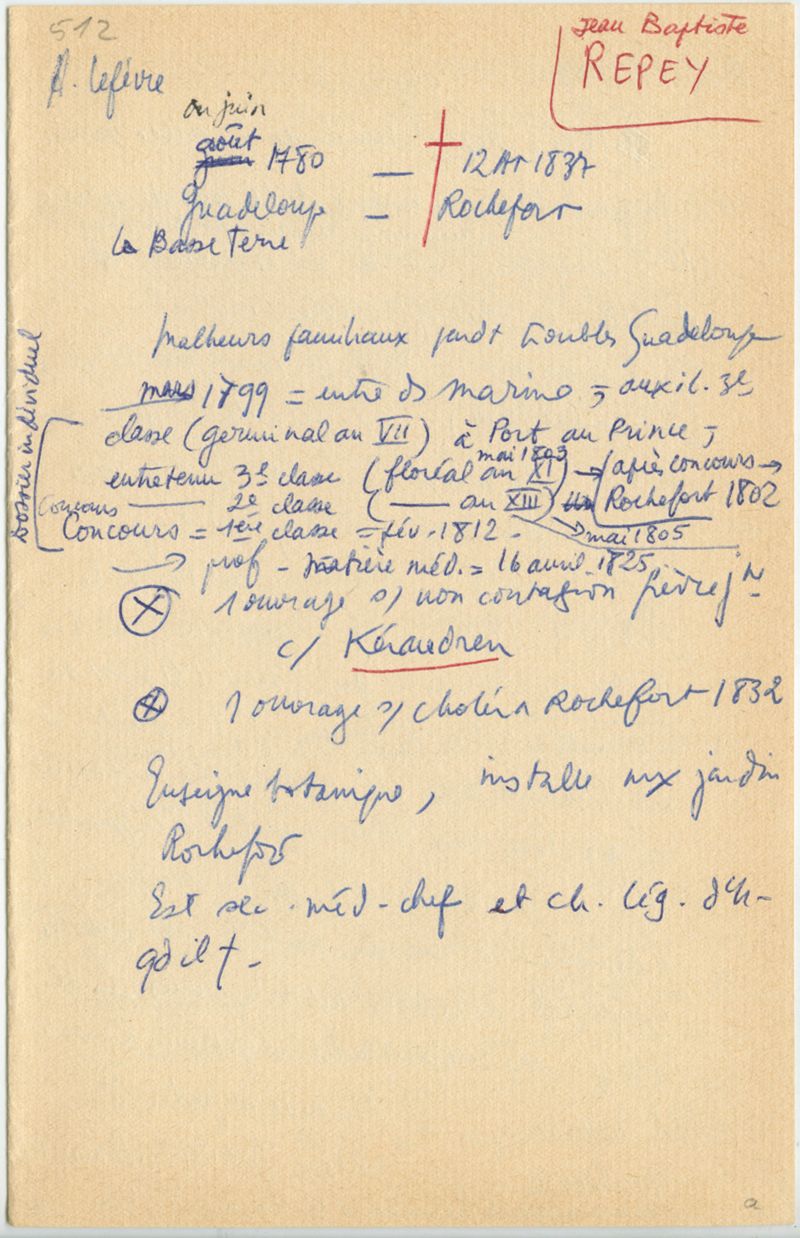 512
Jean Baptiste
REPEY
A. Lefèvre
ou juin
août
1780 — † 12 At 1837
Guadeloupe — Rochefort
la Basse Terre
Malheurs familiaux pendt troubles Guadeloupe
mars 1799 = entre ds marine = auxil. 3e
classe (germinal an VII) à Port au Prince =
mai 1803
entretenu 3e classe (floréal an XI) → (après concours →
Concours —— 2e classe (—— an XIII) Rochefort 1802
Concours = 1ère classe = fév. 1812 - → mai 1805
→ prof - matière méd. = 16 avril 1825
1 ouvrage s/ non contagion fièvre j
c/ Kéraudren
1 ouvrage s/ choléra Rochefort 1832
Enseigne botanique, installe nx jardin
Rochefort
Est sec. méd-chef et ch. Lég. d'h-
qd il † -
dossier individuel
a